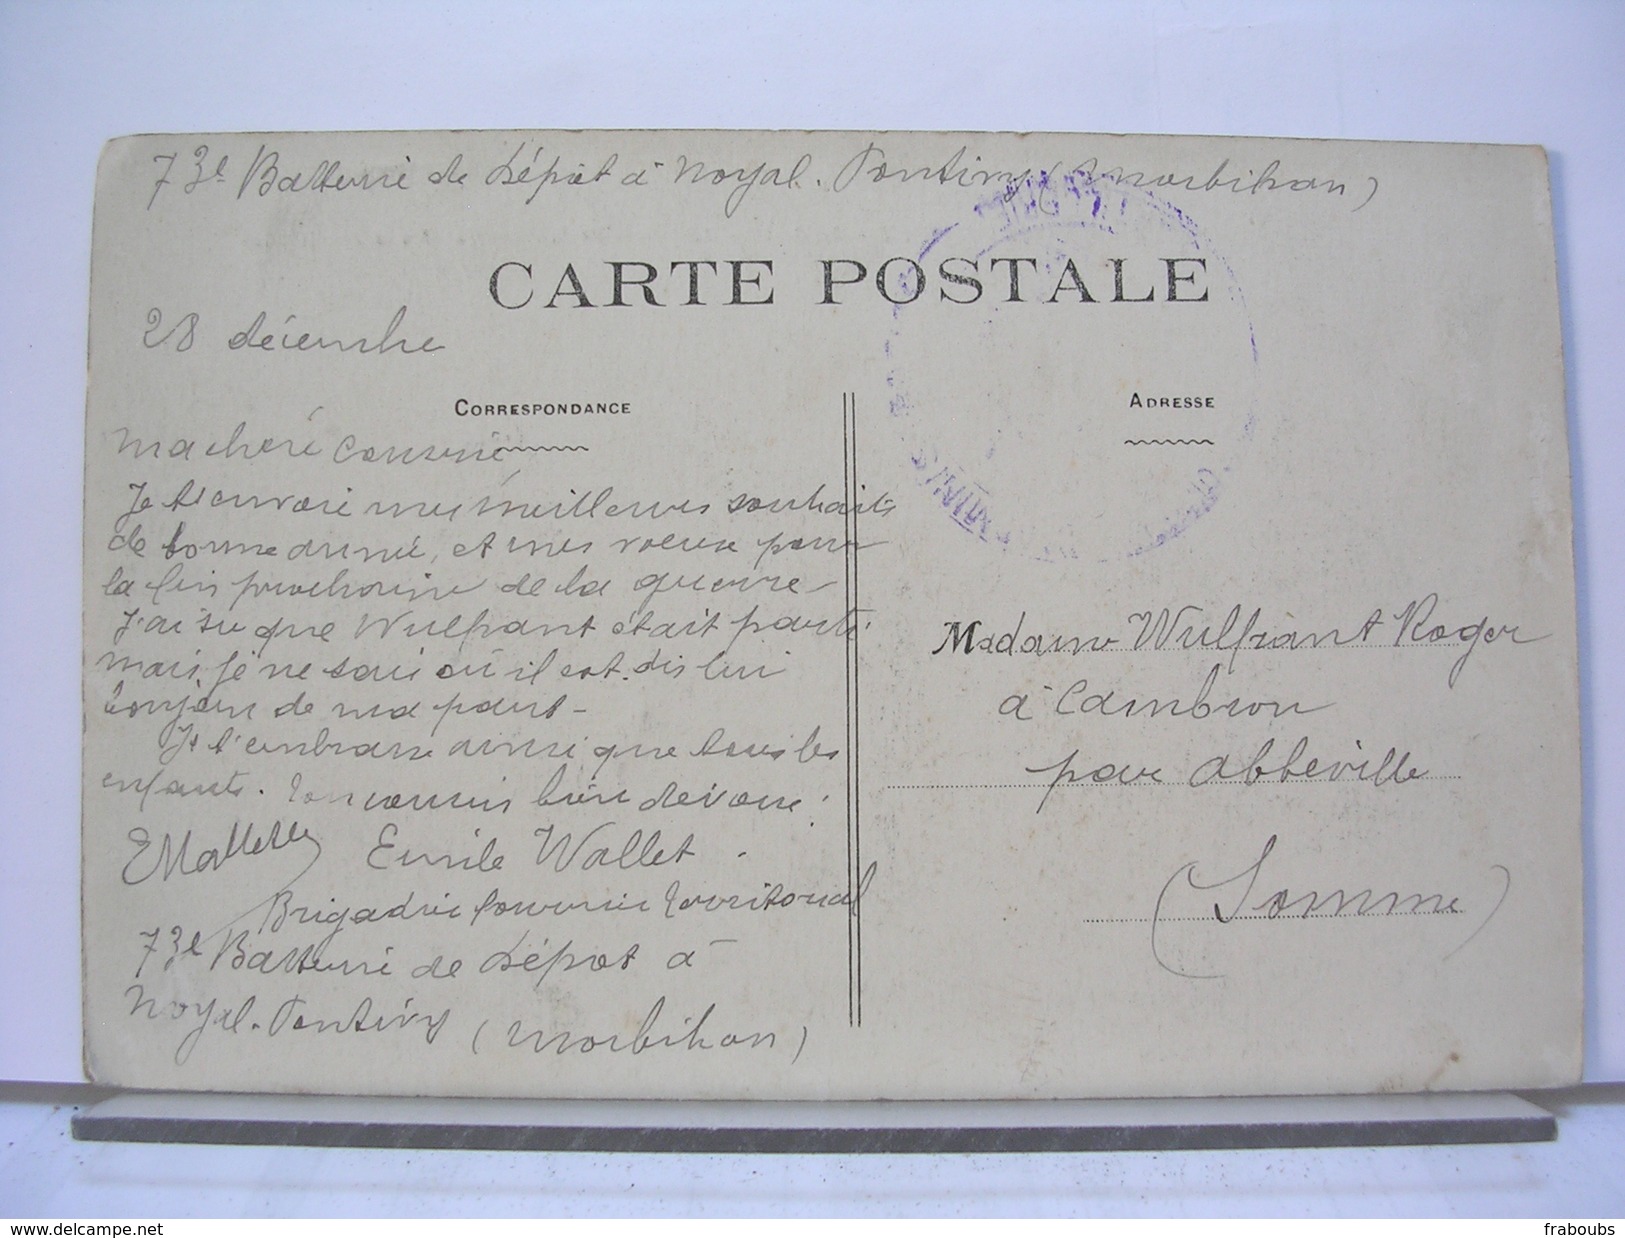 73e Batterie de Dépôt à Noyal. Pontivy (Morbihan)
CARTE POSTALE
28 décembre
CORRESPONDANCE
ADRESSE
Ma chère Cousine,
Je t'envoie mes meilleures souhaits
de bonne année, et mes voeux pour
la fin prochaine de la guerre -
J'ai su que Wulfrant était parti
mais je ne sais où il est. dis lui
bonjour de ma part -
Je t'embrasse ainsi que tous les
enfants. Ton cousin bien dévoué :
EWallet
Emile Wallet .
Brigadier fourrier territorial
73e Batterie de Dépôt à
Noyal. Pontivy (Morbihan)
Madame Wulfrant Roger
à Cambron
par Abbeville
(Somme)
www.delcampe.net
fraboubs